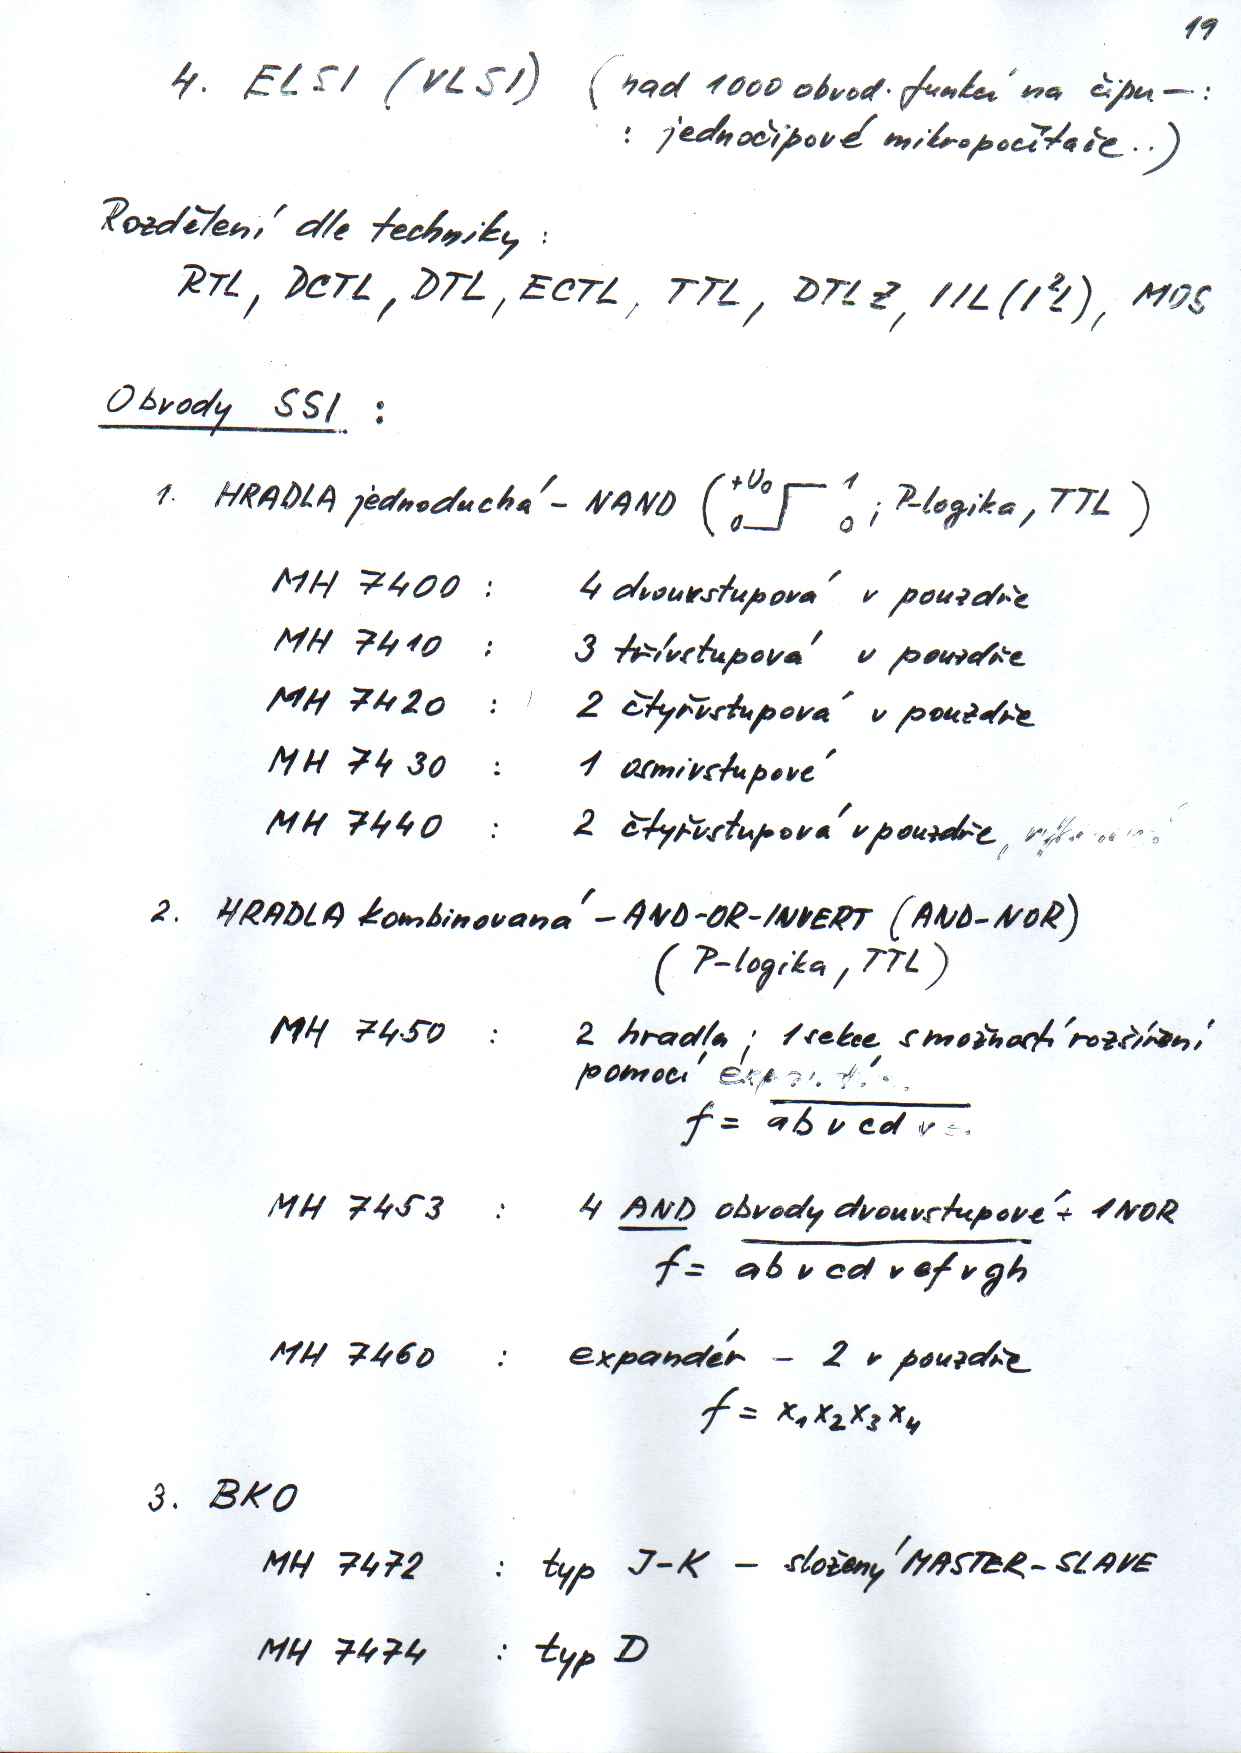 19
4. ELSI (VLSI) (nad 1000 obvod. funkcí na čipu –:
: jednočipové mikropočítače..)
Rozdělení dle techniky :
RTL, DCTL, DTL, ECTL, TTL, DTLZ, IIL (I²L), MOS
Obvody SSI :
1. HRADLA jednoduchá – NAND ( +U₀ 1
0 0 ; P-logika, TTL )
MH 7400 : 4 dvouvstupová v pouzdře
MH 7410 : 3 třívstupová v pouzdře
MH 7420 : 2 čtyřvstupová v pouzdře
MH 7430 : 1 osmivstupové
MH 7440 : 2 čtyřvstupová v pouzdře,
2. HRADLA kombinovaná – AND-OR-INVERT (AND-NOR)
( P-logika, TTL )
MH 7450 : 2 hradla ; 1 sekce s možností rozšíření
pomocí
f = ab v cd v
MH 7453 : 4 AND obvody dvouvstupové + 1 NOR
f = ab v cd v ef v gh
MH 7460 : expandér – 2 v pouzdře
f = x₁x₂x₃x₄
3. BKO
MH 7472 : typ J-K – složený MASTER-SLAVE
MH 7474 : typ D